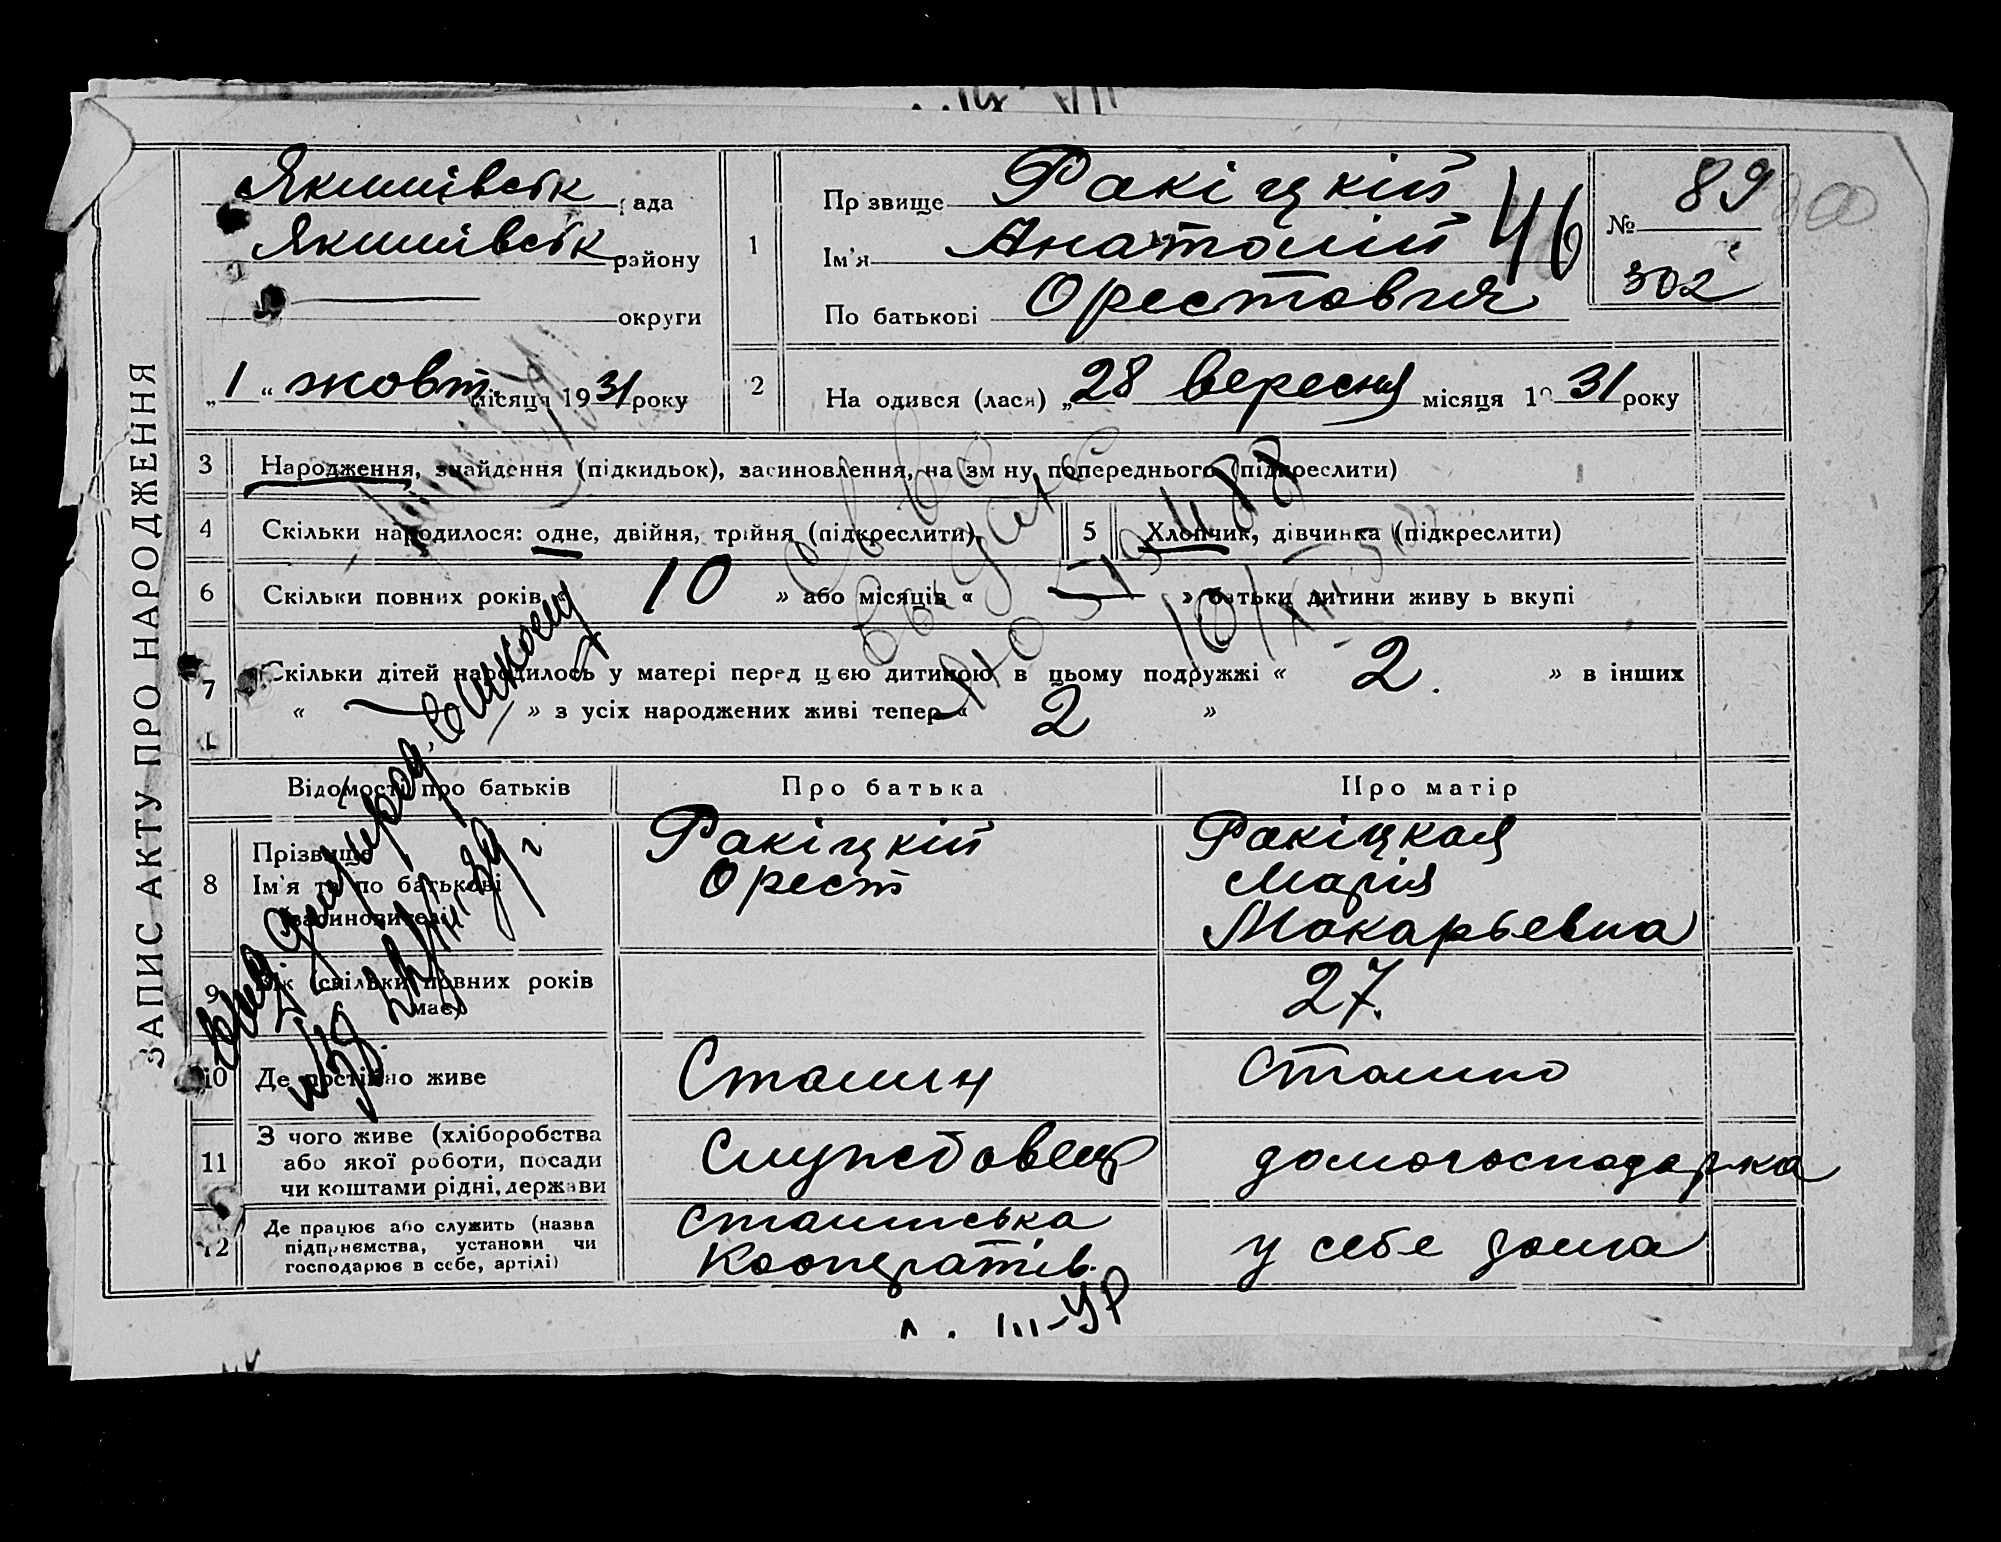 ЗАПИС АКТУ ПРО НАРОДЖЕННЯ
Якимівськ рада
Якимівськ району
округи
„1“ жовт. місяця 1931 року
1
Прізвище Ракіцкій
Ім'я Анатолій
По батькові Орестович
46
№ 89
302
2 На одився (лася) „28 вересня місяця 1931 року
3 Народження, знайдення (підкидьок), засиновлення, на зм ну попереднього (підкреслити)
4 Скільки народилося: одне, двійня, трійня (підкреслити)
5 Хлопчик, дівчинка (підкреслити)
6 Скільки повних років « 10 » або місяців « — » батьки дитини живу ь вкупі
7 Скільки дітей народилось у матері перед цією дитиною в цьому подружжі « 2. » в інших
« — » з усіх народжених живі тепер « 2 »
Відомості про батьків
Про батька
Про матір
8 Прізвище
Ім'я та по батькові
(засиновителі)
Ракіцкій
Орест
Ракіцкая
Марія
Макарьевна
9 Вік (скільки повних років
має)
27.
10 Де постійно живе
Сталин
Сталино
11 З чого живе (хліборобства
або якої роботи, посади
чи коштами рідні, держави
Службовец
домогосподарка
12 Де працює або служить (назва
підприємства, установи чи
господарює в себе, артілі)
Сталинська
Кооператів.
у себе дома
III-УР